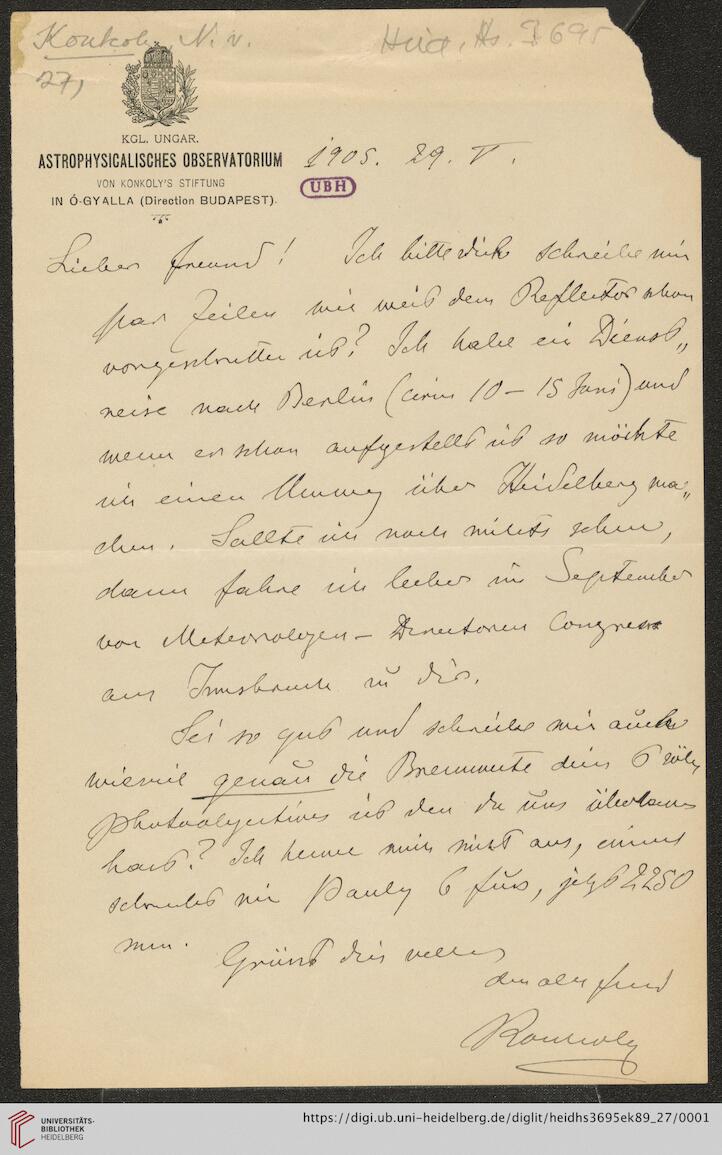 Konkoly N. v.
Heid. Hs. 3695
27,
KGL. UNGAR.
ASTROPHYSICALISCHES OBSERVATORIUM
VON KONKOLY'S STIFTUNG
IN Ó-GYALLA (Direction BUDAPEST).
1905. 29. V.
UBH
Lieber Freund! Ich bitte dich schreibe mir
par Zeilen wie weit dein Reflector schon
vorgeschritten ist? Ich habe ein Dienst„
reise nach Berlin (circa 10 – 15 Juni) und
wenn er schon aufgestellt ist so möchte
ich einen Umweg über Heidelberg ma„
chen. Sollte ich noch nichts sehen,
dann fahre ich lieber im September
von Meteorologen – Directoren Congress
aus Innsbruck zu dir.
Sei so gut und schreibe mir auch
wieviel genau die Brennweite dein 6 zöll
photoobjectives ist den du uns überlassen
hast? Ich kenne mich nicht aus, einmal
schreibst mir Pauly 6 fuss, jetzt 2250
mm.
Grüsst dich
dein alter Freund
Konkoly
UNIVERSITÄTS-
BIBLIOTHEK
HEIDELBERG
https://digi.ub.uni-heidelberg.de/diglit/heidhs3695ek89_27/0001